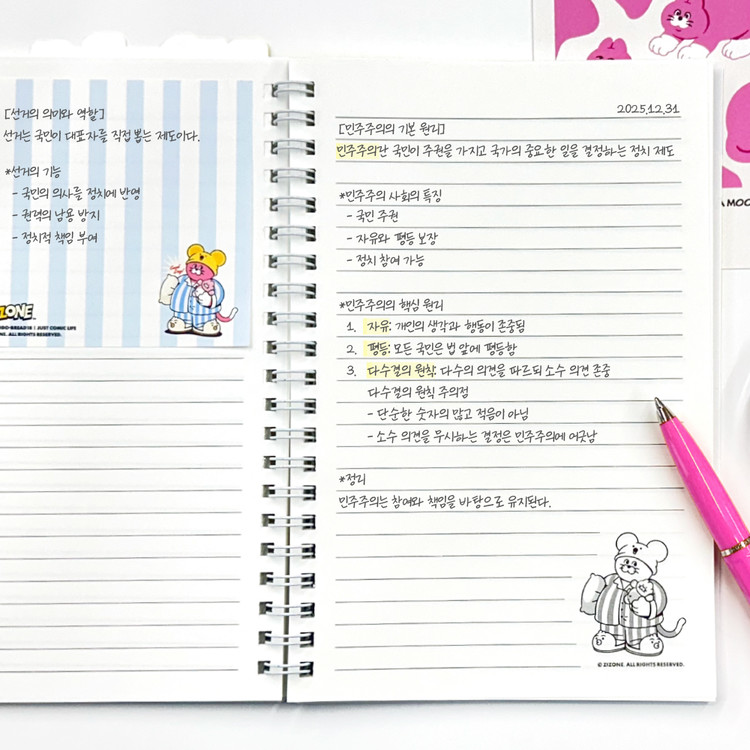 [선거의 의미와 역할]
선거는 국민이 대표자를 직접 뽑는 제도이다.
*선거의 기능
- 국민의 의사를 정치에 반영
- 권력의 남용 방지
- 정치적 책임 부여
ZIZONE.
JUST COMIC LIFE
ALL RIGHTS RESERVED.
2025.12.31
[민주주의의 기본 원리]
민주주의란 국민이 주권을 가지고 국가의 중요한 일을 결정하는 정치 제도
*민주주의 사회의 특징
- 국민 주권
- 자유와 평등 보장
- 정치 참여 가능
*민주주의의 핵심 원리
1. 자유: 개인의 생각과 행동이 존중됨
2. 평등: 모든 국민은 법 앞에 평등함
3. 다수결의 원칙: 다수의 의견을 따르되 소수 의견 존중
다수결의 원칙 주의점
- 단순한 숫자의 많고 적음이 아님
- 소수 의견을 무시하는 결정은 민주주의에 어긋남
*정리
민주주의는 참여와 책임을 바탕으로 유지된다.
© ZIZONE. ALL RIGHTS RESERVED.
A MOO